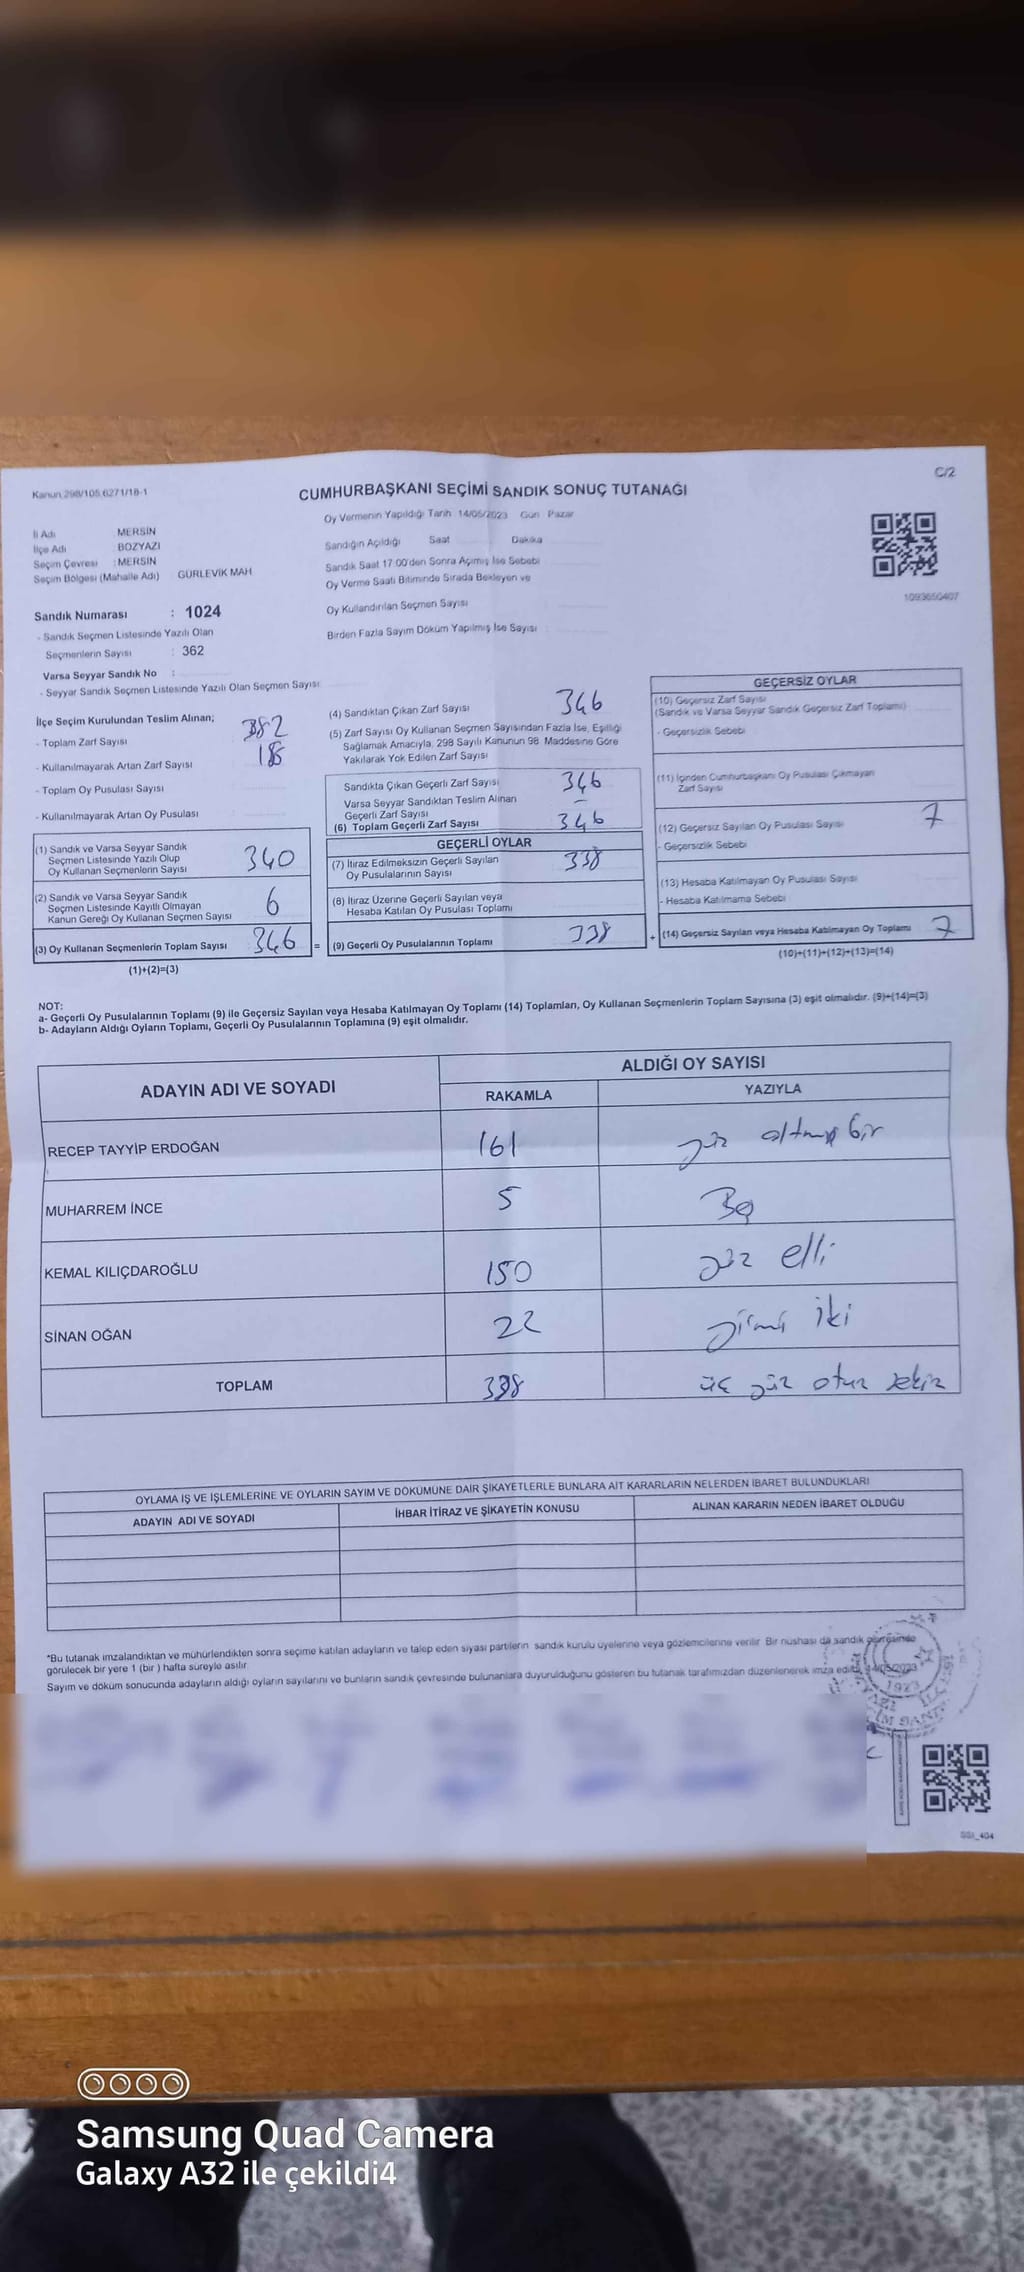 C/2
Kanun 298/105,6271/18-1
CUMHURBAŞKANI SEÇİMİ SANDIK SONUÇ TUTANAĞI
Oy Vermenin Yapıldığı Tarih 14/05/2023 Gün Pazar
İl Adı MERSİN
İlçe Adı BOZYAZI
Seçim Çevresi : MERSİN
Seçim Bölgesi (Mahalle Adı) GÜRLEVİK MAH
Sandık Numarası : 1024
- Sandık Seçmen Listesinde Yazılı Olan
Seçmenlerin Sayısı : 362
Varsa Seyyar Sandık No :
- Seyyar Sandık Seçmen Listesinde Yazılı Olan Seçmen Sayısı
Sandığın Açıldığı Saat Dakika
Sandık Saat 17.00'den Sonra Açımış İse Sebebi
Oy Verme Saati Bitiminde Sırada Bekleyen ve
Oy Kullandırılan Seçmen Sayısı
Birden Fazla Sayım Döküm Yapılmış İse Sayısı
1093650407
İlçe Seçim Kurulundan Teslim Alınan;
- Toplam Zarf Sayısı 382
- Kullanılmayarak Artan Zarf Sayısı
- Toplam Oy Pusulası Sayısı
- Kullanılmayarak Artan Oy Pusulası
(1) Sandık ve Varsa Seyyar Sandık
Seçmen Listesinde Yazılı Olup
Oy Kullanan Seçmenlerin Sayısı 340
(2) Sandık ve Varsa Seyyar Sandık
Seçmen Listesinde Kayıtlı Olmayan
Kanun Gereği Oy Kullanan Seçmen Sayısı 6
(3) Oy Kullanan Seçmenlerin Toplam Sayısı 346 =
(1)+(2)=(3)
(4) Sandıktan Çıkan Zarf Sayısı 346
(5) Zarf Sayısı Oy Kullanan Seçmen Sayısından Fazla İse, Eşitliği
Sağlamak Amacıyla, 298 Sayılı Kanunun 98. Maddesine Göre
Yakılarak Yok Edilen Zarf Sayısı
Sandıkta Çıkan Geçerli Zarf Sayısı 346
Varsa Seyyar Sandıktan Teslim Alınan
Geçerli Zarf Sayısı -
(6) Toplam Geçerli Zarf Sayısı 346
GEÇERLİ OYLAR
(7) İtiraz Edilmeksizin Geçerli Sayılan
Oy Pusulalarının Sayısı 338
(8) İtiraz Üzerine Geçerli Sayılan veya
Hesaba Katılan Oy Pusulası Toplamı
(9) Geçerli Oy Pusulalarının Toplamı 338 +
GEÇERSİZ OYLAR
(10) Geçersiz Zarf Sayısı
(Sandık ve Varsa Seyyar Sandık Geçersiz Zarf Toplamı)
- Geçersizlik Sebebi
(11) İçinden Cumhurbaşkanı Oy Pusulası Çıkmayan
Zarf Sayısı
(12) Geçersiz Sayılan Oy Pusulası Sayısı 7
- Geçersizlik Sebebi
(13) Hesaba Katılmayan Oy Pusulası Sayısı
- Hesaba Katılmama Sebebi
(14) Geçersiz Sayılan veya Hesaba Katılmayan Oy Toplamı 7
(10)+(11)+(12)+(13)=(14)
NOT:
a- Geçerli Oy Pusulalarının Toplamı (9) ile Geçersiz Sayılan veya Hesaba Katılmayan Oy Toplamı (14) Toplamları, Oy Kullanan Seçmenlerin Toplam Sayısına (3) eşit olmalıdır. (9)+(14)=(3)
b- Adayların Aldığı Oyların Toplamı, Geçerli Oy Pusulalarının Toplamına (9) eşit olmalıdır.
ADAYIN ADI VE SOYADI ALDIĞI OY SAYISI
RAKAMLA YAZIYLA
RECEP TAYYİP ERDOĞAN 161 yüz altmış bir
MUHARREM İNCE 5 Beş
KEMAL KILIÇDAROĞLU 150 yüz elli
SİNAN OĞAN 22 yirmi iki
TOPLAM 338 üç yüz otuz sekiz
OYLAMA İŞ VE İŞLEMLERİNE VE OYLARIN SAYIM VE DÖKÜMÜNE DAİR ŞİKAYETLERLE BUNLARA AİT KARARLARIN NELERDEN İBARET BULUNDUKLARI
ADAYIN ADI VE SOYADI İHBAR İTİRAZ VE ŞİKAYETİN KONUSU ALINAN KARARIN NEDEN İBARET OLDUĞU
*Bu tutanak imzalandıktan ve mühürlendikten sonra seçime katılan adayların ve talep eden siyasi partilerin sandık kurulu üyelerine veya gözlemcilerine verilir. Bir nüshası da sandık çevresinde
görülecek bir yere 1 (bir ) hafta süreyle asılır.
Sayım ve döküm sonucunda adayların aldığı oyların sayılarını ve bunların sandık çevresinde bulunanlara duyurulduğunu gösteren bu tutanak tarafımızdan düzenlenerek imza edildi. 14/05/2023
1923
SSI_404
Samsung Quad Camera
Galaxy A32 ile çekildi4